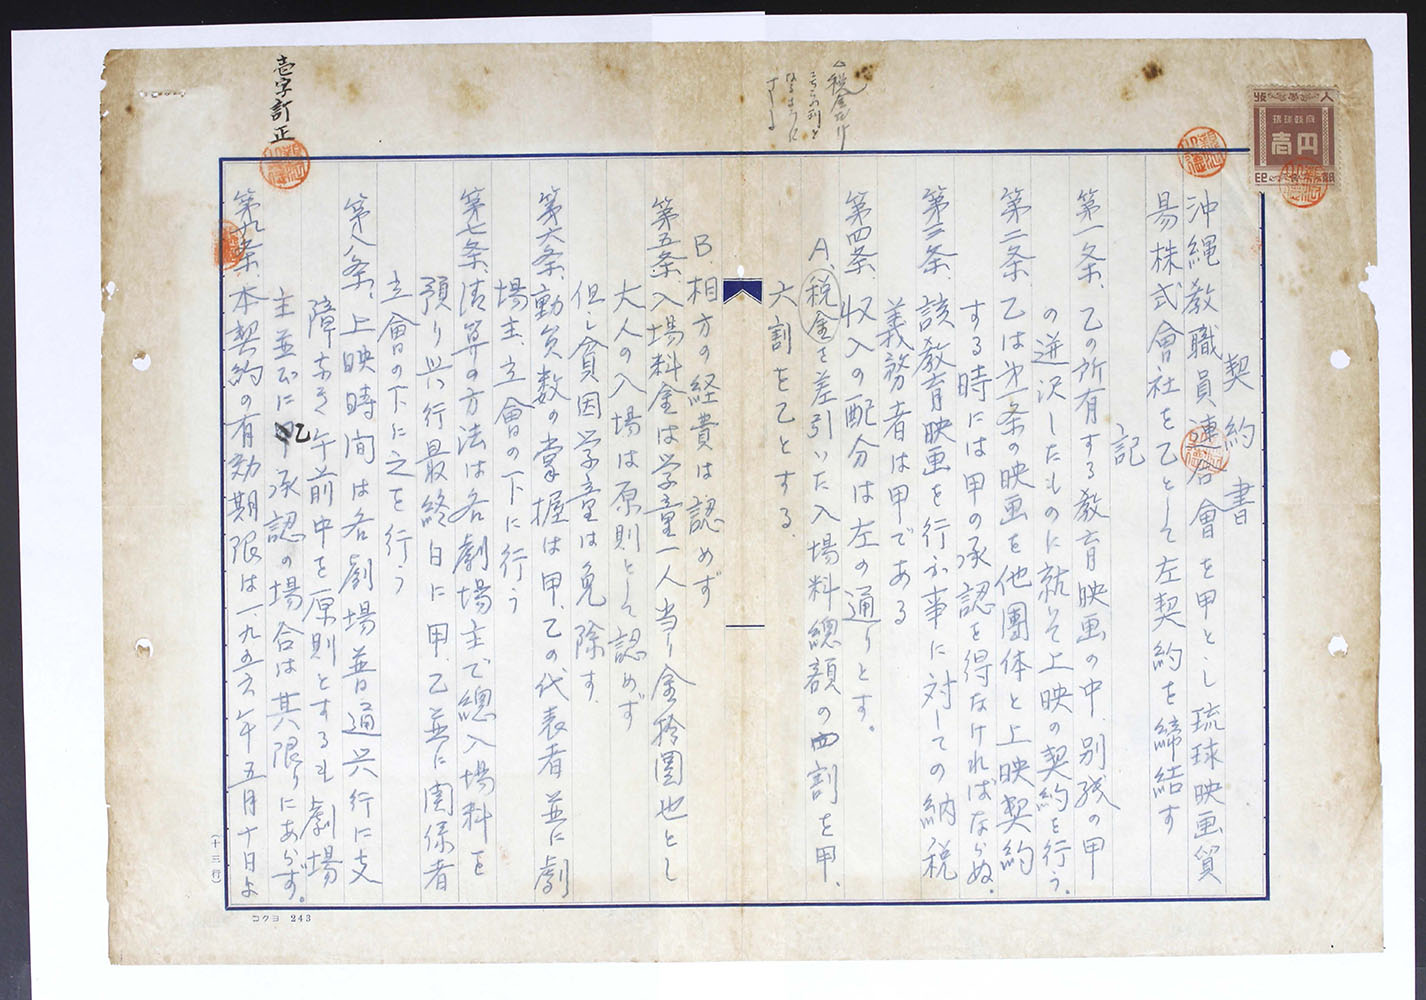 契約書
沖縄教職員連合會を甲とし琉球映画貿
易株式會社を乙として左契約を締結す
記
第一条、乙の所有する教育映画の中、別残の甲
の選沢したものに就いて上映の契約を行う。
第二条、乙は才一条の映画を他團体と上映契約
する時には甲の承認を得なければならぬ。
第三条、該教育映画を行ふ事に対しての納税
義務者は甲である
第四条、収入の配分は左の通りとす。
A、税金を差引いた入場料總額の四割を甲、
六割を乙とする、
B 相方の経費は認めず
第五条、入場料金は学童一人当り金拾圓也とし
大人の入場は原則として認めず
但し貧困学童は免除す
第六条、動員数の掌握は甲、乙の代表者並に劇
場主、立會の下に行う
第七条、清算の方法は各劇場主で總入場料を
預り興行最終日に甲、乙並に関係者
立會の下に之を行う
第八条、上映時間は各劇場普通興行に支
障なき午前中を原則とするも劇場
主並びに乙承認の場合は其限りにあらず。
第九条、本契約の有効期限は一九五六年五月十日よ
壱字訂正
税金だけ
収入印
琉球政府
壹円
(十三行)
コクヨ 243